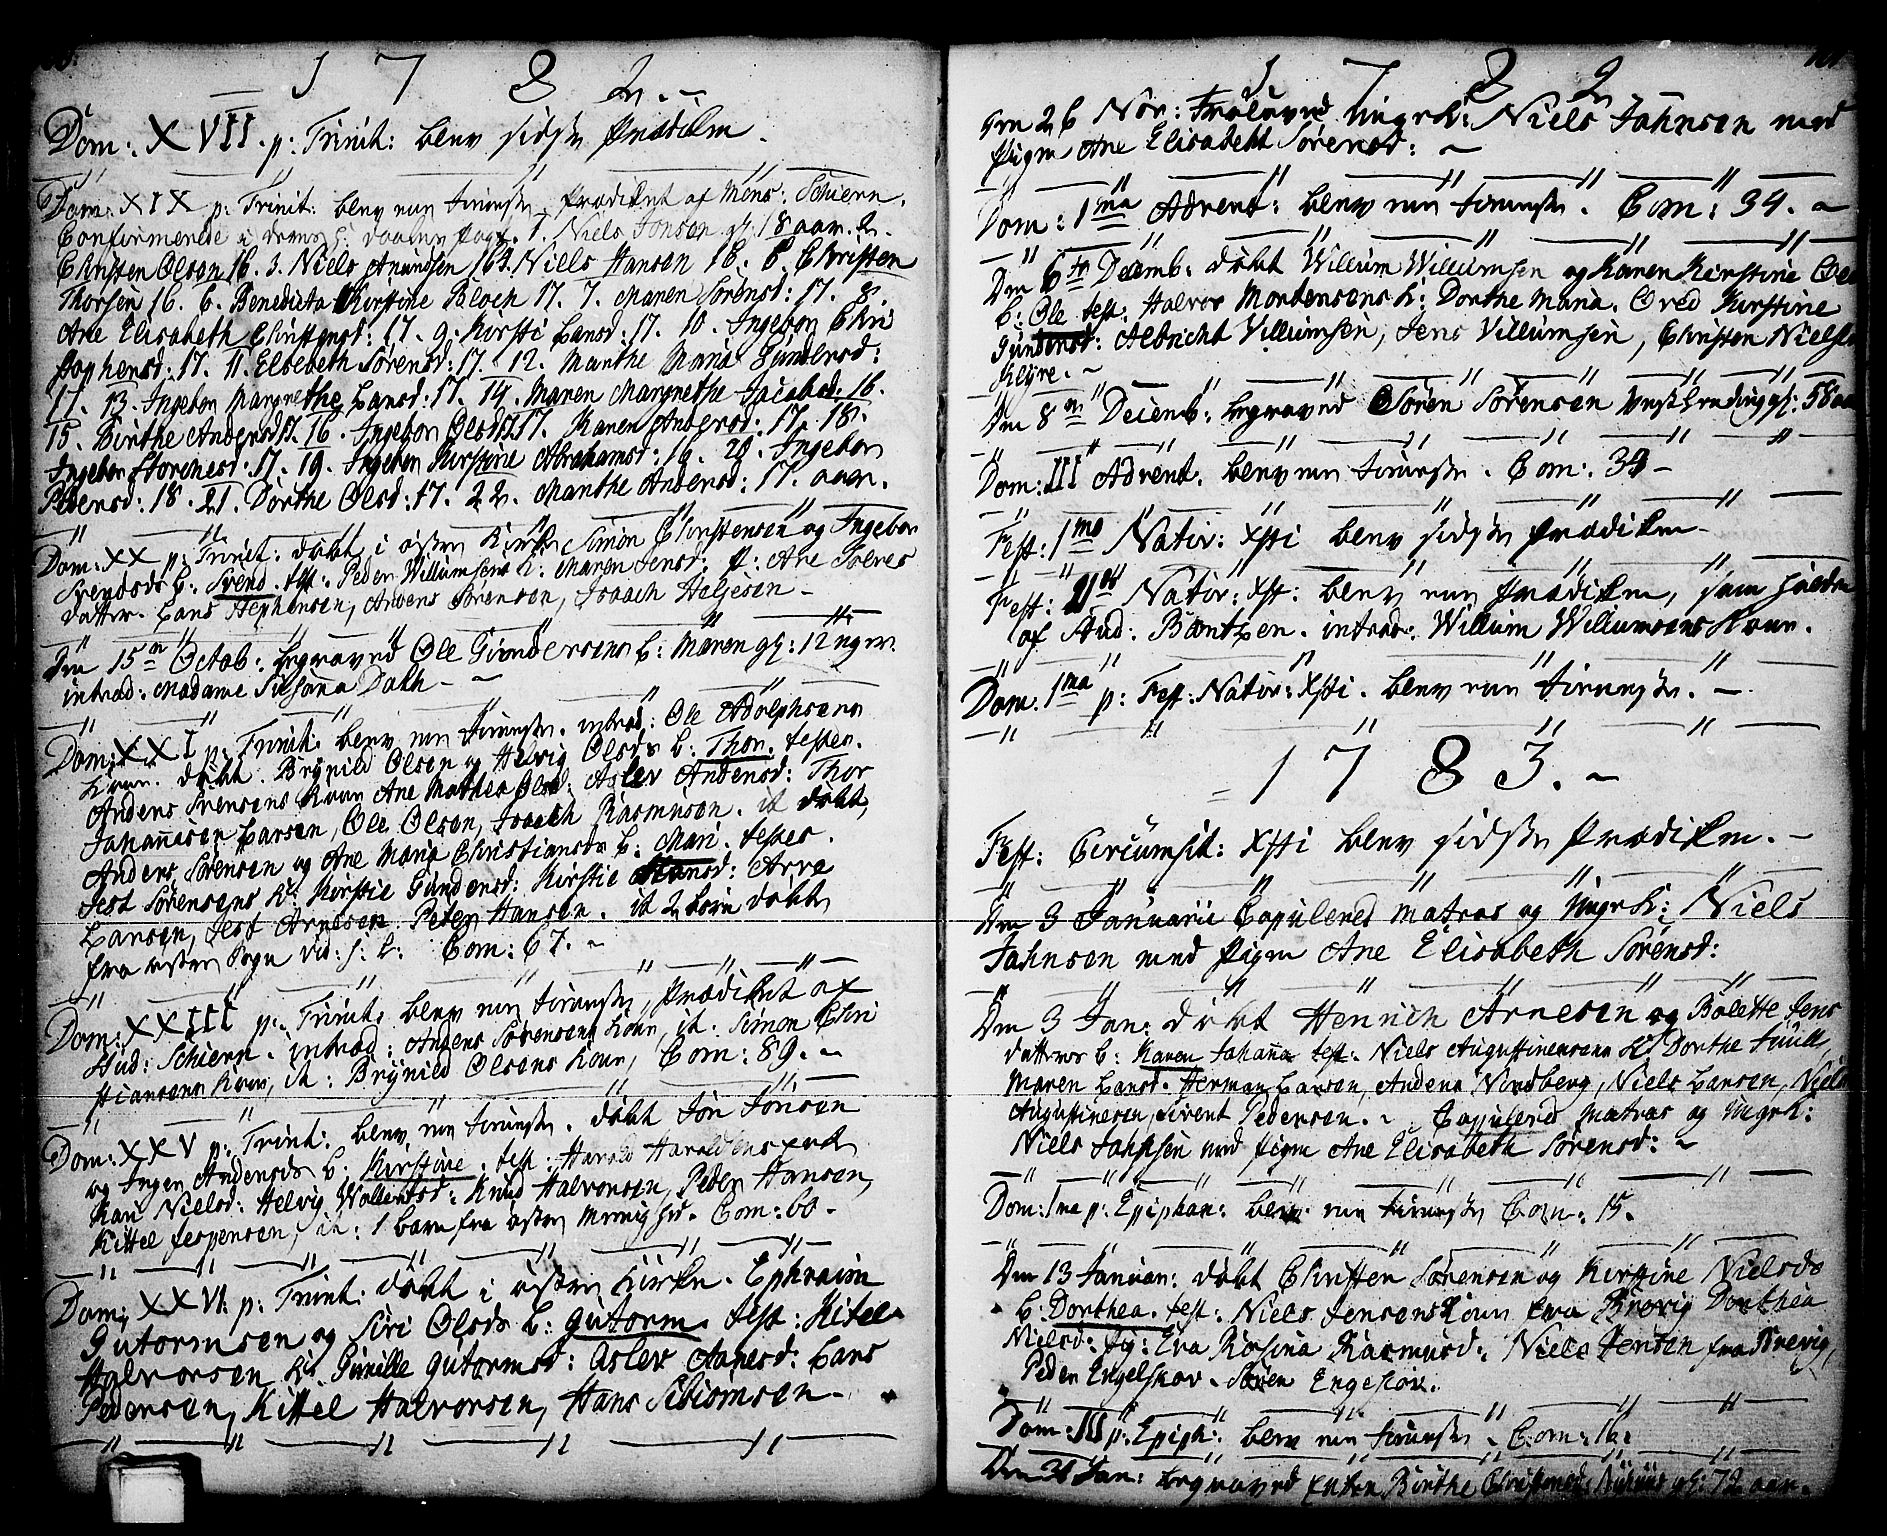 1 7 8 2.
Dom: XVII. p: Trinit: blev sidste Prædiken.
Dom: XIX p: Trinit: blev min tieneste, Prædiket af Mons: Schiern.
Confirmerede 1. Niels Jonsen gl: 18 aar. 2.
Christen Olsen 16. 3. Niels Amundsen 16. Niels Hansen 18. 5. Christen
Thorsen 16. 6. Benedicta Kirstine Bloch 17. 7. Maren Sørensd: 17. 8.
Ane Elisabeth Christensd: 17. 9. Kirsti Larsd: 17. 10. Ingebor Chri
stophersd: 17. 11. Elsebeth Sørensd: 17. 12. Marthe Maria Gundersd:
17. 13. Ingebor Margrethe Larsd: 17. 14. Maren Margrethe Jacobsd: 16.
15. Birthe Andersd 17. 16. Ingebor Olsd 17. 17. Karen Andersd: 17. 18.
Ingebor Storchesd: 17. 19. Ingebor Kirstine Abrahamsd: 19. 20. Ingebor
Pedersd: 18. 21. Dorthe Olsd: 17. 22. Marthe Andersd: 17. aar.
Dom: XX p: Trinit: døbt i østre Kirke Simon Christensen og Ingebor
Svendsds b: Svend. test: Peder Willumsens K: Maren Jensd: P: Ane Tolves
datter. Lars Stephensen, Anders Sørensen, Isaach Haljesen
Den 15de Octob: begraved Ole Gundersens b: Maren gl: 12 uger.
introd: Madame Susanna Dahl
Dom: XXI p: Trinit: blev min tieneste. introd: Ole Adolphsens
Kone. døbt. Brynild Olsen og Helvig Olsds b: Thor. testes.
Anders Svensens Kone Ane Mathea Olsd: Aslev Andersd: Thor
Johannisen Larsen, Ole Olsen, Isaach Rasmusen. it døbt,
Anders Sørensen og Ane Maria Christiansds b: Mari. testes.
Jest Sørensens K: Kirstie Gundersd: Kirstie Hansd: Arve
Larsen, Jest Arnesen Peter Hansen. it 2 børn døbt
fra østre Sogn vid: h: k: Com: 67.
Dom: XXIII p: Trinit: blev min tieneste, Prædiket af
Stud: Schiern. introd: Anders Sørensens Kone, it. Simon Chri
stiansens Kone, it: Brynild Olsens Kone, Com: 89.
Dom: XXV p: Trinit: blev min tieneste. døbt Jon Jonsen
og Inger Andersds b: Kirstine. test: Harald Haraldsens
Kari Nielsd: Helvig Wollertsd: Knud Halvorsen, Peder Hansen,
Kittel Jespersen, it: 1 barn fra østre Menighed. Com: 60.
Dom: XXVI: p: Trinit: døbt i østre Kirke. Ephraim
Gutormsen og Siri Olsds b: Gutorm. test: Kittel
Halvorsen K: Gunille Gutormsd: Aslev Aanesd: Lars
Pedersen, Kittel Halvorsen, Hans Sibiornsen
1 7 8 2
Den 26 Nov: Troloved Ungrk: Niels Jahnsen med
Pigen Ane Elisabeth Sørensd:
Dom: 1ma Advent: blev min tieneste. Com: 34.
Den 6te Decemb: døbt Willum Willumsen og Karen Kirstine
b: Ole test: Halvor Mortensens K: Dorthe Maria. Kirstine
Gundersd: Albricht Villumsen, Jens Villumsen, Christen Nielsen
Klyve.
Den 8de Decemb: begraved Søren Sørensen gl: 58 aar
Dom: III Advent: blev min tieneste. Com: 39
Fest: 1mo Nativ: Xsti blev sidste Prædiken
Fest: Nativ: Xst: blev min Prædiken, som holden
af Stud: Bæntzen. introd: Willum Willumsens Kone.
Dom: 1ma p: Fest: Nativ: Xsti. blev min tieneste.
1 7 8 3.
Fest: Circumsit: Xsti blev sidste Prædiken.
Den 3 Januarii Copulered Matros og Ungrk: Niels
Jahnsen med Pigen Ane Elisabeth Sørensd:
Den 3 Jan: døbt Henrich Arnesen og Bolette Jens
datters b: Karen Johanna test: Niels Augustinensens K: Dorthe
Maren Larsd. Herman Larsen, Anders Nordberg, Niels Larsen, Niels
Augustinesen, Sivert Pedersen. Copulered Matros og Ungrk:
Niels Jahnsen med Pigen Ane Elisabeth Sørensd:
Dom: 1ma p: Epiphan: blev min tieneste Com: 15.
Den 13 Januar: døbt Christen Sørensen og Kirstine Nielsds
b: Dorthea. test: Niels Jensens Kone fra Brevig Dorthea
Nielsd: Eva Rosina Rasmusd: Niels Jensen fra Brevig,
Peder Engelskov. Søren Engeskov.
Dom: III p: Epiph: blev min tieneste. Com: 16.
Jan: begraved Enken Birthe gl: 72 aar.